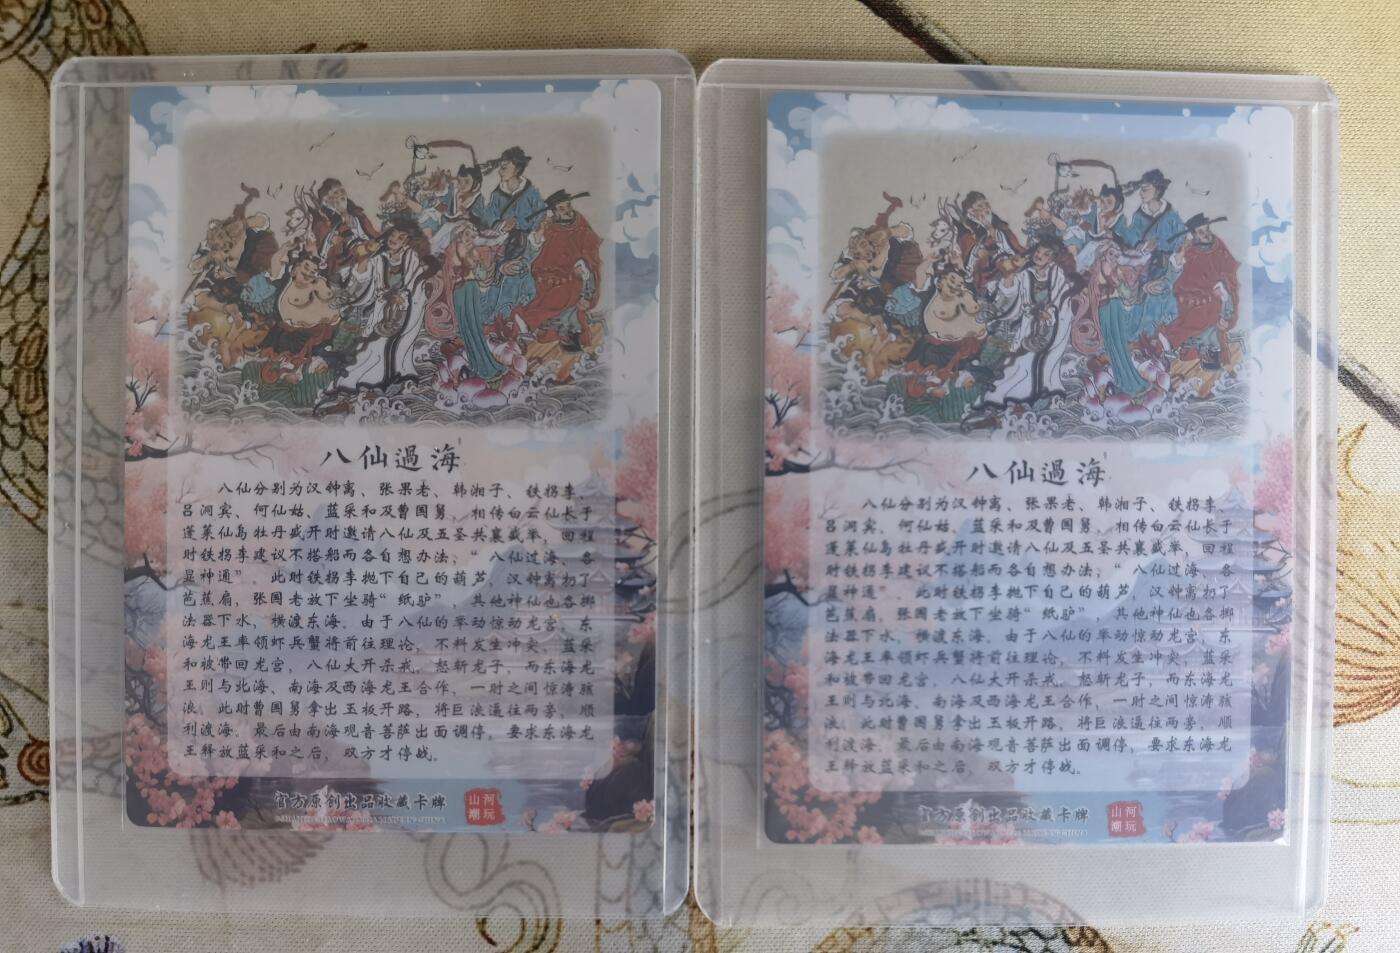 八仙過海
八仙分别为汉钟离、张果老、韩湘子、铁拐李、
吕洞宾、何仙姑、蓝采和及曹国舅。相传白云仙长于
蓬莱仙岛牡丹盛开时邀请八仙及五圣共襄盛举，回程
时铁拐李建议不搭船而各自想办法，“八仙过海、各
显神通”。此时铁拐李抛下自己的葫芦，汉钟离扔了
芭蕉扇，张国老放下坐骑“纸驴”，其他神仙也各掷
法器下水，横渡东海。由于八仙的举动惊动龙宫，东
海龙王率领虾兵蟹将前往理论，不料发生冲突，蓝采
和被带回龙宫，八仙大开杀戒，怒斩龙子，而东海龙
王则与北海、南海及西海龙王合作，一时之间惊涛骇
浪。此时曹国舅拿出玉板开路，将巨浪逼往两旁，顺
利渡海。最后由南海观音菩萨出面调停，要求东海龙
王释放蓝采和之后，双方才停战。
官方原创出品收藏卡牌
山河
潮玩
八仙過海
八仙分别为汉钟离、张果老、韩湘子、铁拐李、
吕洞宾、何仙姑、蓝采和及曹国舅。相传白云仙长于
蓬莱仙岛牡丹盛开时邀请八仙及五圣共襄盛举，回程
时铁拐李建议不搭船而各自想办法，“八仙过海、各
显神通”。此时铁拐李抛下自己的葫芦，汉钟离扔了
芭蕉扇，张国老放下坐骑“纸驴”，其他神仙也各掷
法器下水，横渡东海。由于八仙的举动惊动龙宫，东
海龙王率领虾兵蟹将前往理论，不料发生冲突，蓝采
和被带回龙宫，八仙大开杀戒，怒斩龙子，而东海龙
王则与北海、南海及西海龙王合作，一时之间惊涛骇
浪。此时曹国舅拿出玉板开路，将巨浪逼往两旁，顺
利渡海。最后由南海观音菩萨出面调停，要求东海龙
王释放蓝采和之后，双方才停战。
官方原创出品收藏卡牌
山河
潮玩